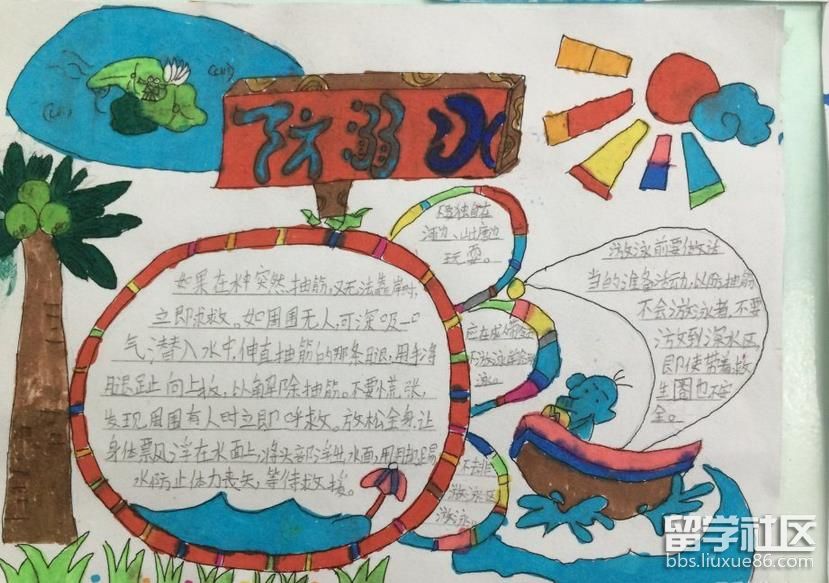 防溺水
不要独自在
河边、山塘边
玩耍。
如果在水中突然抽筋,又无法靠岸时,
立即求救。如周围无人,可深吸一口
气潜入水中,伸直抽筋的那条腿,用手将
脚趾向上扳,以解除抽筋。不要慌张,
发现周围有人时立即呼救。放松全身,让
身体飘浮在水面上,将头部浮出水面,用脚踢
水,防止体力丧失,等待救援。
应在成人带领
下游泳学会游
泳。
不去非
游泳区
游泳。
游泳前要做适
当的准备活动,以防抽筋
不会游泳者,不要
游到深水区,
即使带着救
生圈也不安
全。
留学社区
bbs.liuxue86.com